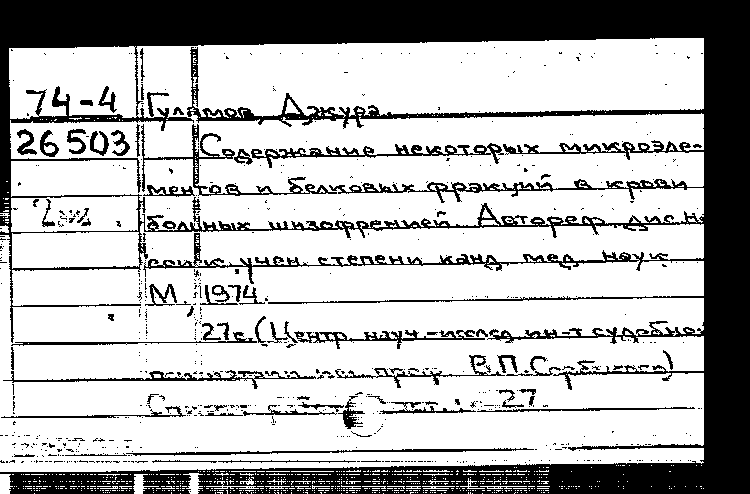 74-4 Гулямов, Джура.
26503 Содержание некоторых микроэле-
ментов и белковых фракций в крови
больных шизофренией. Автореф. дис. на
соиск. учен. степени канд. мед. наук
М., 1974.
27с. (Центр. науч.-исслед. ин-т судебной
психиатрии им. проф. В.П. Сербского)
Список работ с. 27.